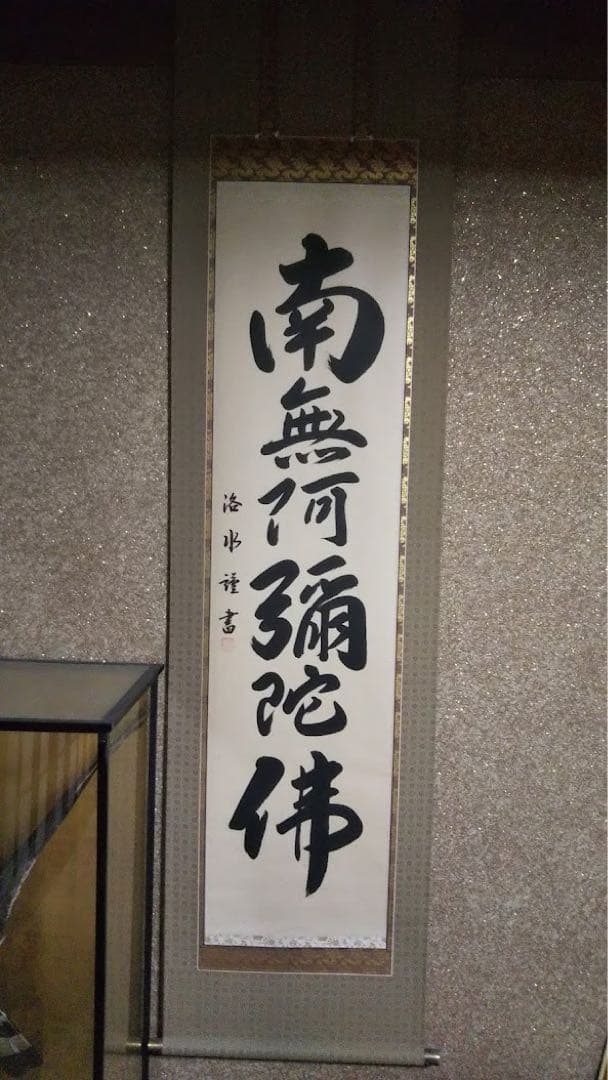 南無阿彌陀佛
洛水謹書